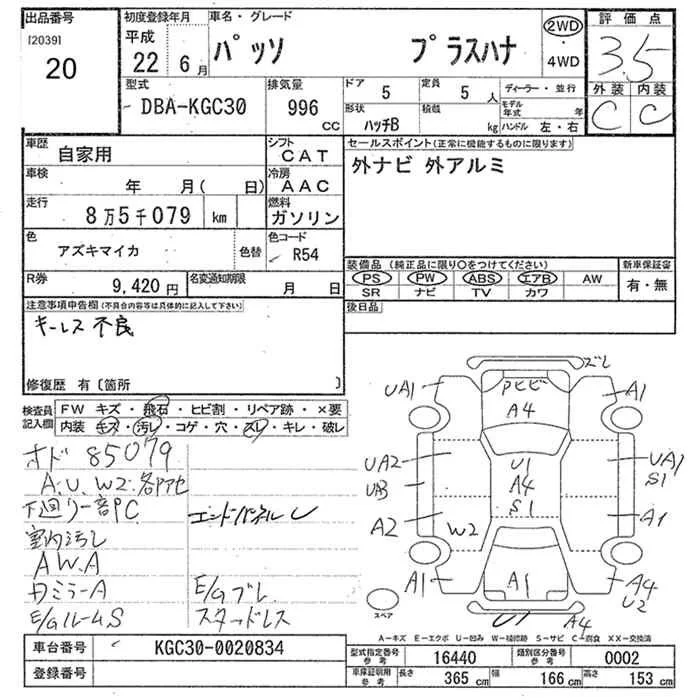 出品番号
[2039]
20
初度登録年月
平成
22 6月
車名・グレード
パッソ プラスハナ
2WD
・
4WD
評価点
3.5
外装 内装
C C
型式
DBA-KGC30
排気量
996
CC
ドア 5
定員 5人
形状
ハッチB
積載
kg
ディーラー・並行
モデル年式 年
ハンドル 左・右
車歴
自家用
シフト
CAT
車検
年 月( 日)
冷房
AAC
走行
8万5千079 km
燃料
ガソリン
色
アズキマイカ
色替
色コード
R54
R券
9,420円
名変通知期限
月 日
セールスポイント(正常に機能するものに限ります)
外ナビ 外アルミ
装備品(純正品に限り○をつけてください)
PS PW ABS エアB AW
SR ナビ TV カワ
新車保証書
有・無
後日品
注意事項申告欄(不具合内容等は具体的に記入して下さい)
キーレス不良
修復歴 有〔箇所 〕
検査員記入欄
FW キズ・飛石・ヒビ割・リペア跡・×要
内装 キズ・汚レ・コゲ・穴・スレ・キレ・破レ
オド 85079
A.U.W2.各所アセ
下廻り一部PC
エンドパネルU
室内汚し
AW.A
Dミラー A
E/Gブレ
E/GルームS
スタッドレス
ズレ
UA1
トビビ
A4
A1
UA2
U1
A4
S1
UA1
S1
UA3
A2
W2
A1
A1
A1
A4
U2
U1
A4
スペア
A-キズ E-エクボ U-凹み W-補修跡 S-サビ C-腐食 XX-交換済
車台番号
KGC30-0020834
登録番号
型式指定番号
参考
16440
類別区分番号
参考
0002
車庫証明用
参考
長さ
365 cm
幅
166 cm
高さ
153 cm